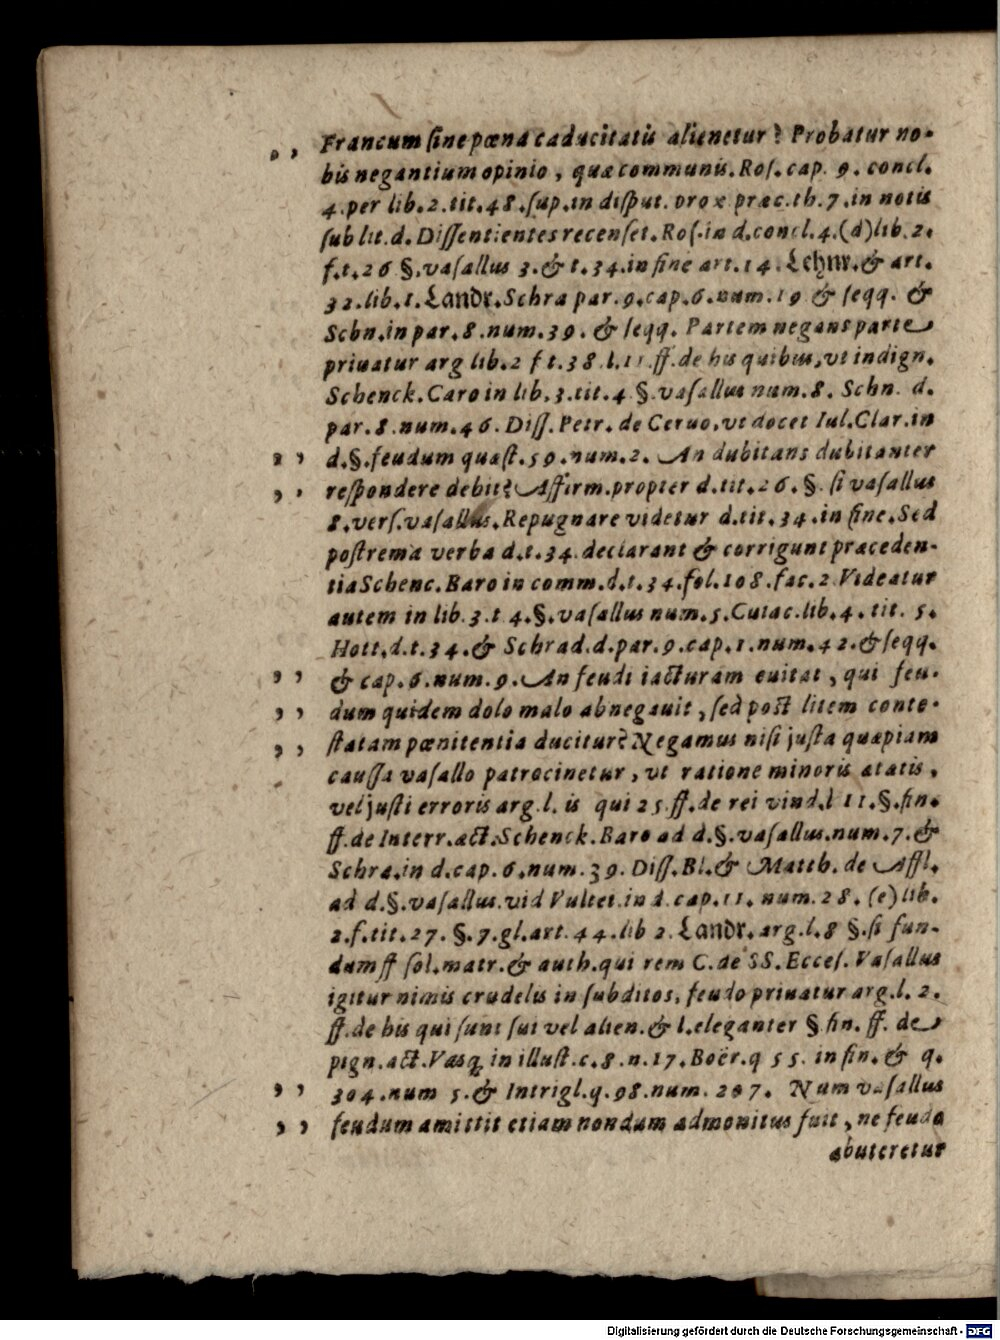 Francum sine pœna caducitatis alienetur? Probatur no-
bis negantium opinio, quæ communis. Ros. cap. 9. concl.
4. per lib. 2. tit. 48. sup. in disput. prox præc. th. 7. in notis
sub lit. d. Dissentientes recenset. Ros. in d. concl. 4. (d) lib. 2.
f. t. 26 §. vasallus 3. & t. 34. in fine art. 14. Lehnr. & art.
32. lib. 1. Landr. Schra par. 9. cap. 6. num. 19 & seqq. &
Schn. in par. 8. num. 39. & seqq. Partem negans parte
priuatur arg lib. 2 f t. 38 l. 11. ff. de his quibus, vt indign.
Schenck. Caro in lib. 3. tit. 4 §. vasallus num. 8. Schn. d.
par. 8. num. 46. Diss. Petr. de Ceruo, vt docet Iul. Clar. in
,, d. §. feudum quæst. 59. num. 2. An dubitans dubitanter
,, respondere debit? Affirm. propter d. tit. 26. §. si vasallus
8. vers. vasallus. Repugnare videtur d. tit. 34. in fine. Sed
postrema verba d. t. 34. declarant & corrigunt præceden-
tia Schenc. Baro in comm. d. t. 34. fol. 108. fac. 2 Videatur
autem in lib. 3. t 4. §. vasallus num. 5. Cuiac. lib. 4. tit. 5.
Hott. d. t. 34. & Schrad. d. par. 9. cap. 1. num. 42. & seqq.
,, & cap. 6. num. 9. An feudi iacturam euitat, qui feu-
,, dum quidem dolo malo abnegauit, sed post litem conte-
,, statam pœnitentia ducitur? Negamus nisi justa quæpiam
caussa vasallo patrocinetur, vt ratione minoris ætatis,
vel justi erroris arg. l. is qui 25. ff. de rei vind. l 11. §. fin.
ff. de Interr. act. Schenck. Baro ad d. §. vasallus. num. 7. &
Schra. in d. cap. 6. num. 39. Diss. Bl. & Matth. de Affl.
ad d. §. vasallus. vid Vultei. in d. cap. 11. num. 28. (e) lib.
2. f. tit. 27. §. 7. gl. art. 44. lib 2. Landr. arg. l. 8 §. si fun-
dum ff sol. matr. & auth. qui rem C. de SS. Eccles. Vasallus
igitur nimis crudelis in subditos, feudo priuatur arg. l. 2.
ff. de his qui sunt sui vel alien. & l. eleganter § fin. ff. de
pign. act. Vasq. in illust. c. 8. n. 17. Boër. q 55. in fin. & q.
,, 304. num 5. & Intrigl. q. 98. num. 207. Num vasallus
,, feudum amittit etiam nondum admonitus fuit, ne feudo
abuteretur
Digitalisierung gefördert durch die Deutsche Forschungsgemeinschaft - DFG